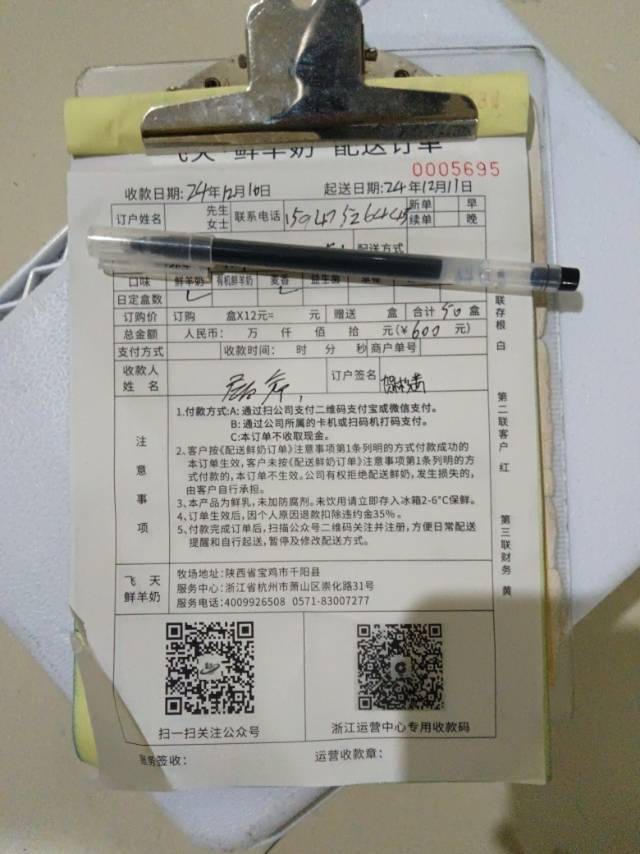 飞天“鲜羊奶”配送订单
0005695
收款日期:24年12月10日 起送日期:24年12月11日
订户姓名 先生 女士 联系电话 新单 续单 早 晚
配送方式
口味 鲜羊奶 有机鲜羊奶 麦香 益生菌
日定盒数
订购价 订购 盒X12元= 元 赠送 盒 合计50盒
总金额 人民币: 万 仟 佰 拾 元(¥600元)
支付方式 收款时间: 时 分 秒 商户单号
收款人姓名 订户签名
注意事项
1.付款方式:A:通过扫公司支付二维码支付宝或微信支付。
B:通过公司所属的卡机或扫码机打码支付。
C:本订单不收取现金。
2、客户按《配送鲜奶订单》注意事项第1条列明的方式付款成功的
本订单生效,客户未按《配送鲜奶订单》注意事项第1条列明的方
式付款的,本订单不生效。公司有权拒绝配送鲜奶,发生损失的,
由客户自行承担。
3、本产品为鲜乳,未加防腐剂。未饮用请立即存入冰箱2-6°C保鲜。
4、订单生效后,因个人原因退款扣除违约金35%。
5、付款完成订单后,扫描公众号二维码关注并注册,方便日常配送
提醒和自行起送,暂停及修改配送方式。
飞天
鲜羊奶
牧场地址:陕西省宝鸡市千阳县
服务中心:浙江省杭州市萧山区崇化路31号
服务电话:4009926508 0571-83007277
扫一扫关注公众号
浙江运营中心专用收款码
账务签收: 运营收款章:
联存根 白
第二联客户 红
第三联财务 黄